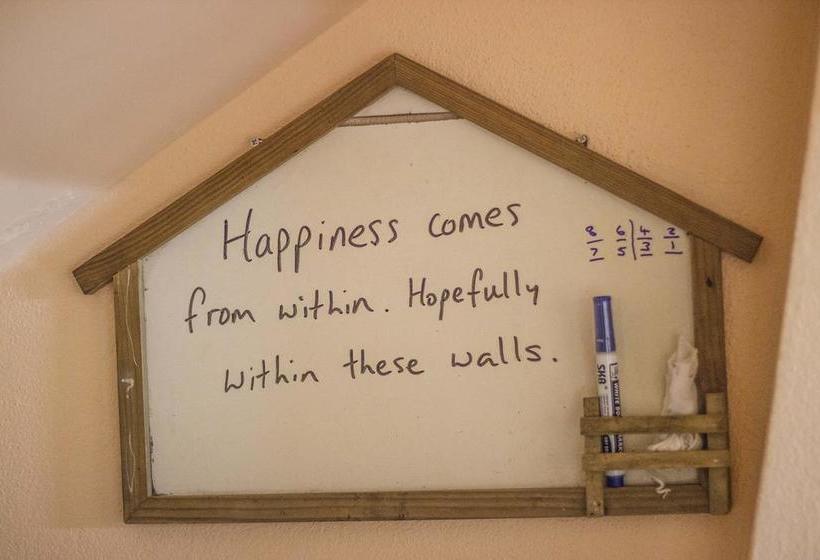 Happiness comes
from within. Hopefully
within these walls.
8 6 4 2
7 5 3 1
SKA